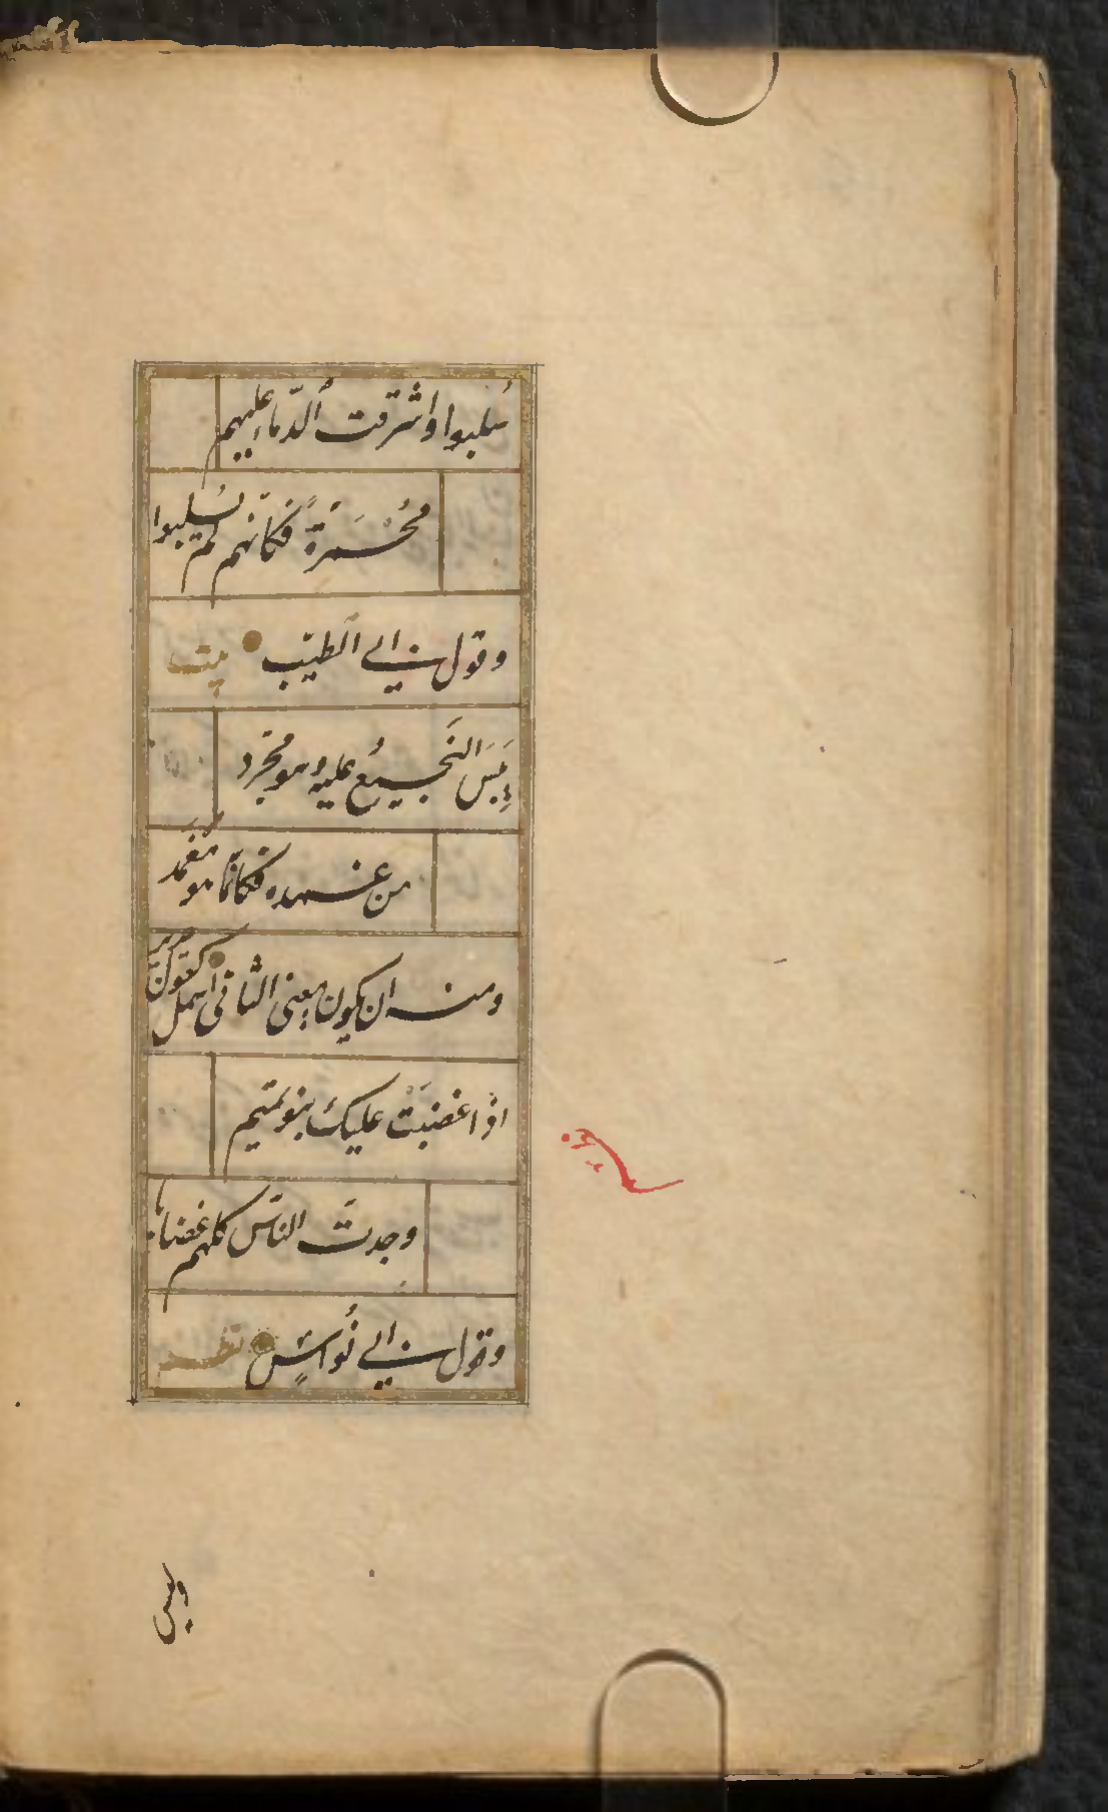 سُلبوا واشرقت الدّماء عليهم
مُحْمَرَّةً فكانّهم لم يُسلَبوا
وقول ابي الطيّب بيت
يَبِسَ النَجيعُ عليه وهو مجرّد
من غمده فكانّما هو مُغمد
ومنه ان يكون معنى الثاني اشمل كقول جرير
اذا غضبَتْ عليك بنو تميم
وجدتَ الناسَ كلهم غضابا
وقول ابي نُواسٍ نظم
وليس